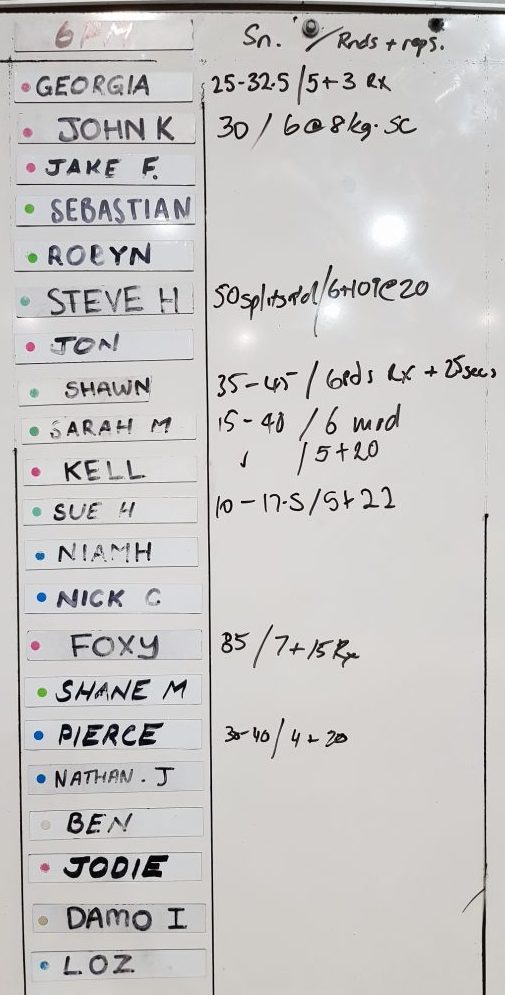 6PM Sn. / Rnds + reps.
GEORGIA 25-32.5 / 5+3 Rx
JOHN K 30 / 6@8kg. SC
JAKE F.
SEBASTIAN
ROBYN
STEVE H 50 split snd / 6+10 @20
JON
SHAWN 35-45 / 6rds Rx + 25secs
SARAH M 15-40 / 6 mod
KELL ↓ / 5+20
SUE H 10-17.5 / 5+22
NIAMH
NICK C
FOXY 85 / 7+15 Rx
SHANE M
PIERCE 30-40 / 4+20
NATHAN. J
BEN
JODIE
DAMO I
LOZ